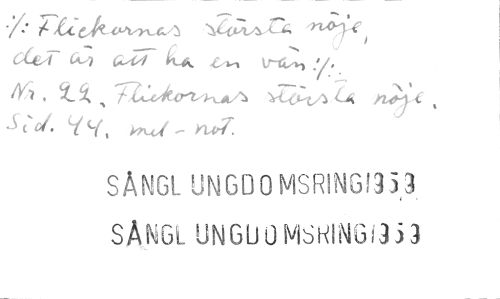 :/: Flickornas största nöje,
det är att ha en vän :/:
Nr. 22, Flickornas största nöje.
Sid. 44. mel-not.
SÅNGL UNGDOMSRING 1959
SÅNGL UNGDOMSRING 1959